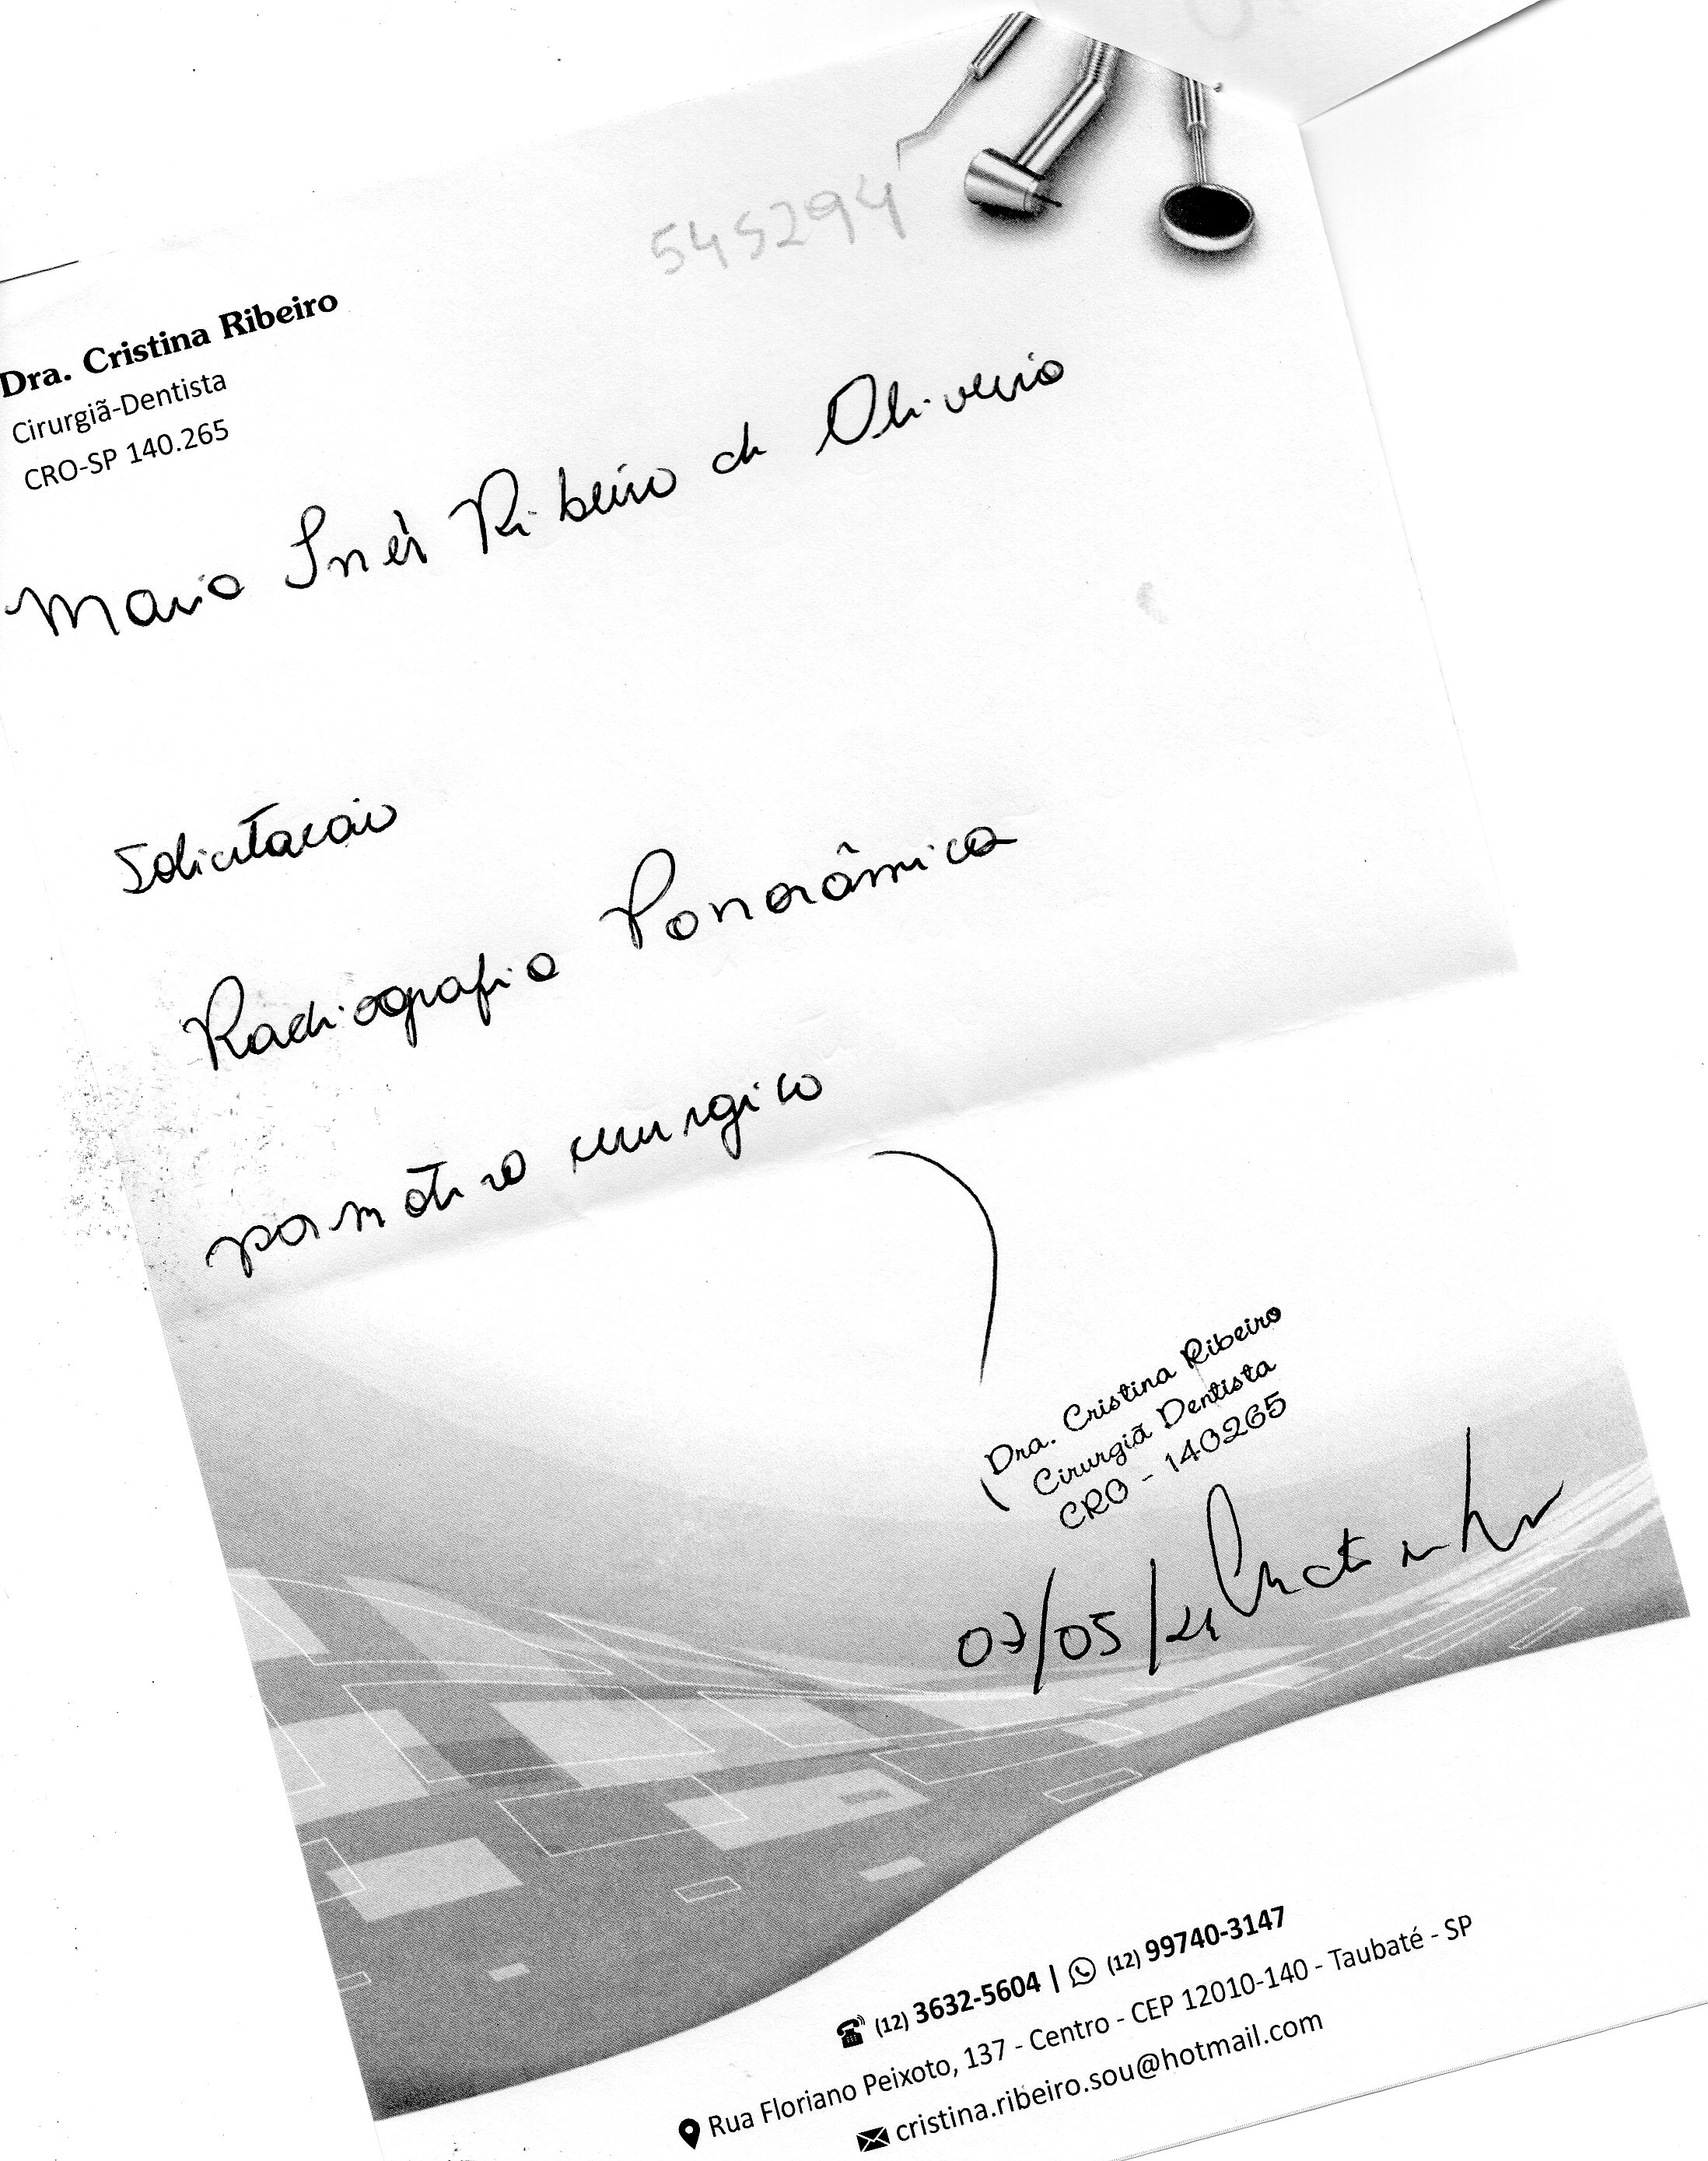 545294
Dra. Cristina Ribeiro
Cirurgiã-Dentista
CRO-SP 140.265
Maria Inês Ribeiro de Oliveira
Solicitacão
Radiografia Panorâmica
por motivo cirurgico
Dra. Cristina Ribeiro
Cirurgiã Dentista
CRO - 140265
07/05/24
(12) 3632-5604 | (12) 99740-3147
Rua Floriano Peixoto, 137 - Centro - CEP 12010-140 - Taubaté - SP
cristina.ribeiro.sou@hotmail.com